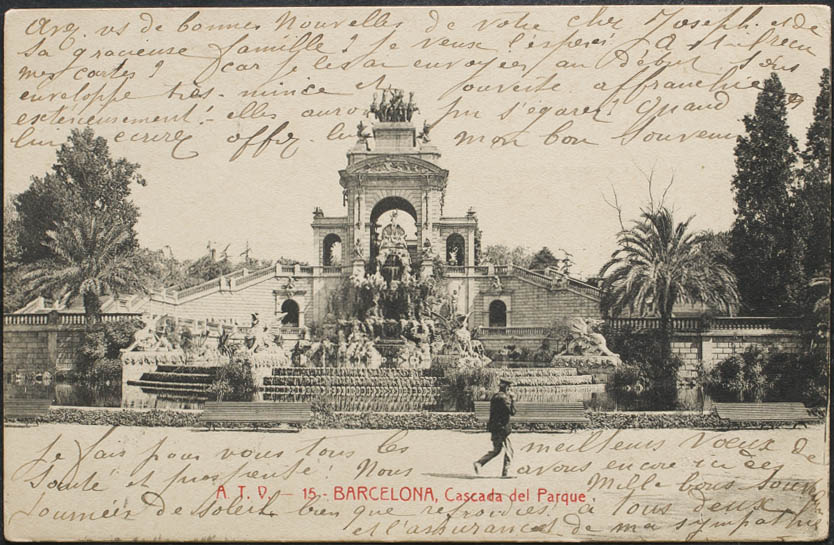 Avez vs de bonnes Nouvelles de votre cher Joseph. et de
sa gracieuse famille? je veux l'espérer. A-t-il reçu
mes cartes? car je les ai envoyées au début sous
enveloppe très-mince et ouverte affranchie
extérieurement!- elles auront pu s'égarer! Quand
lui écrirez offrez lui mon bon souvenir
Je fais pour vous tous les meilleurs Vœux de
Santé et prospérité! Nous avons encore ici des
A. T. V. — 15.- BARCELONA, Cascada del Parque
Mille bons souv
journées de soleil bien que refroidies, à tous deux
et l'assurance de ma sympathie